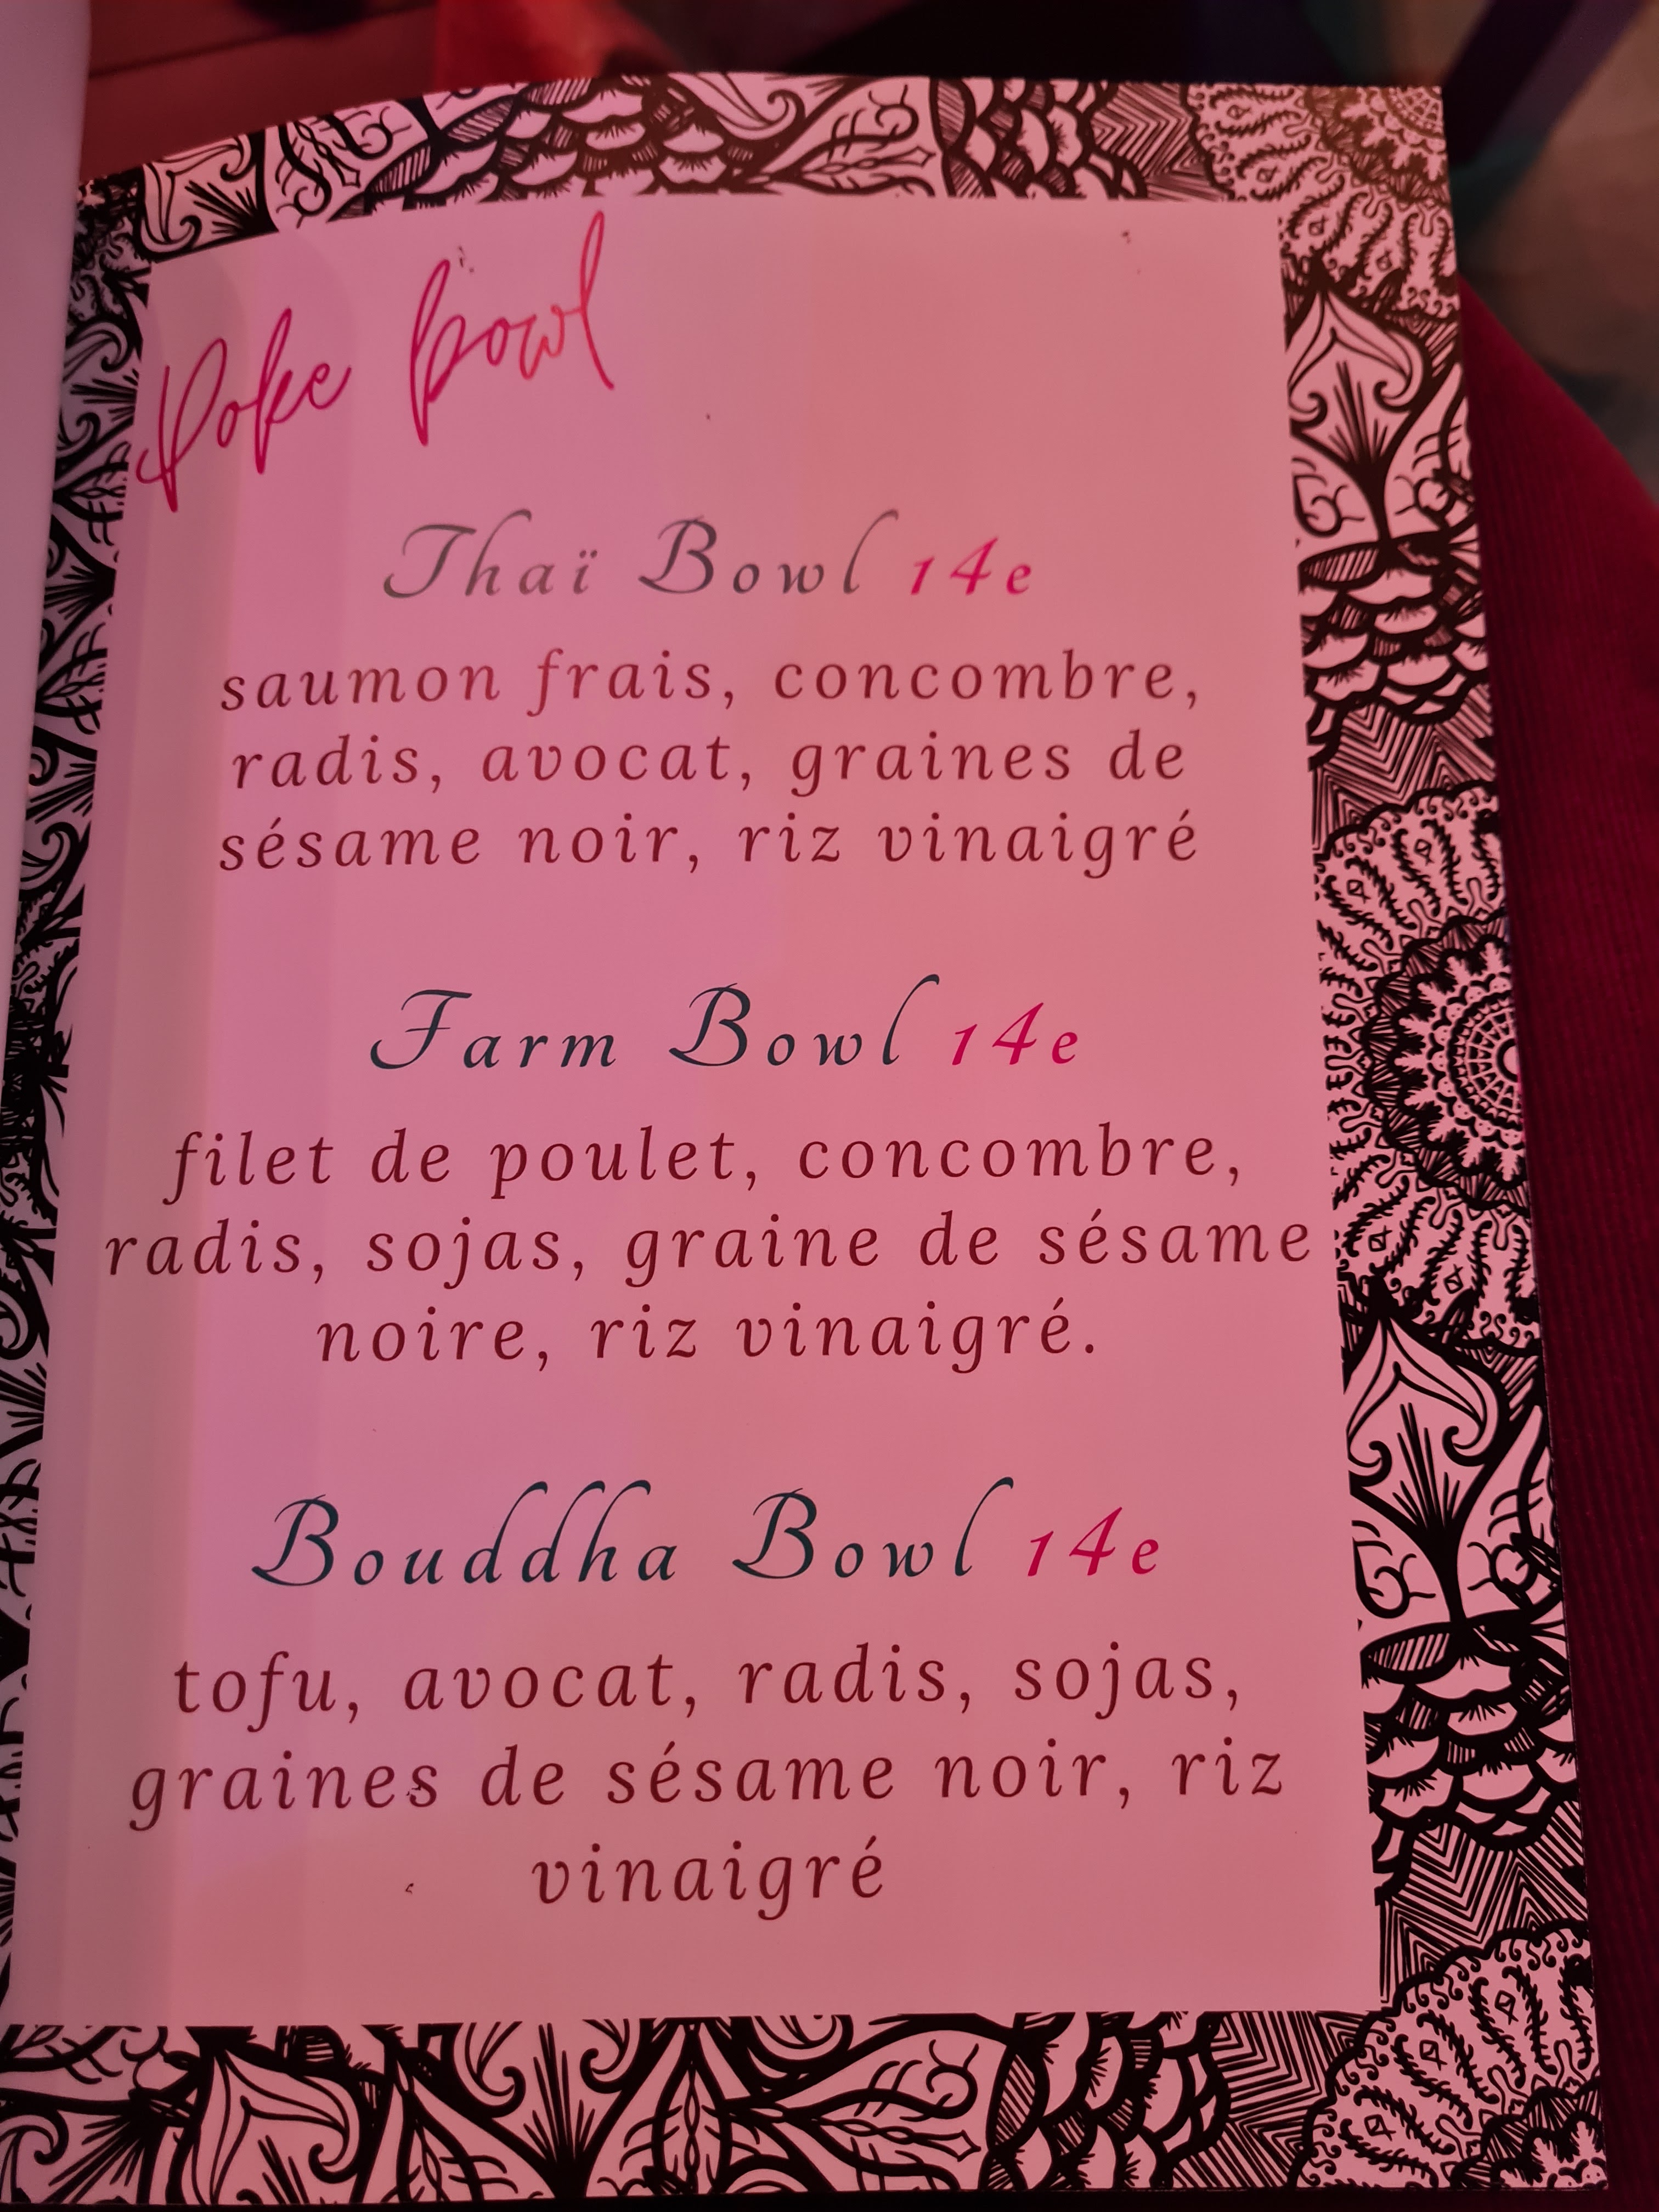 Poke bowl
Thaï Bowl 14e
saumon frais, concombre,
radis, avocat, graines de
sésame noir, riz vinaigré
Farm Bowl 14e
filet de poulet, concombre,
radis, sojas, graine de sésame
noire, riz vinaigré.
Bouddha Bowl 14e
tofu, avocat, radis, sojas,
graines de sésame noir, riz
vinaigré